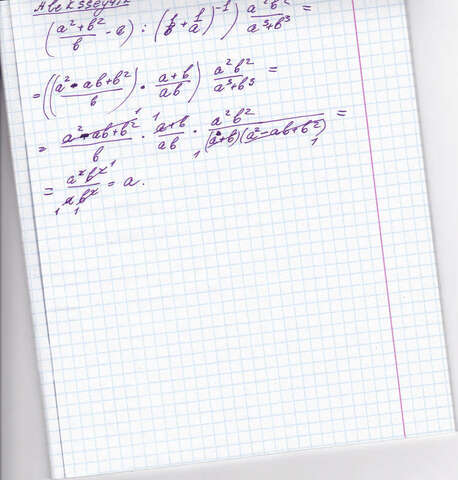 ((a²+b²)/b - a) : (1/b + 1/a)⁻¹) a²b²/(a³+b³) =
= ((a² - ab + b²)/b) · (a+b)/(ab)) a²b²/(a³+b³) =
= (a² - ab + b²)/b · (a+b)/(ab) · a²b²/((a+b)(a² - ab + b²)) =
= a²b²/(ab²) = a.